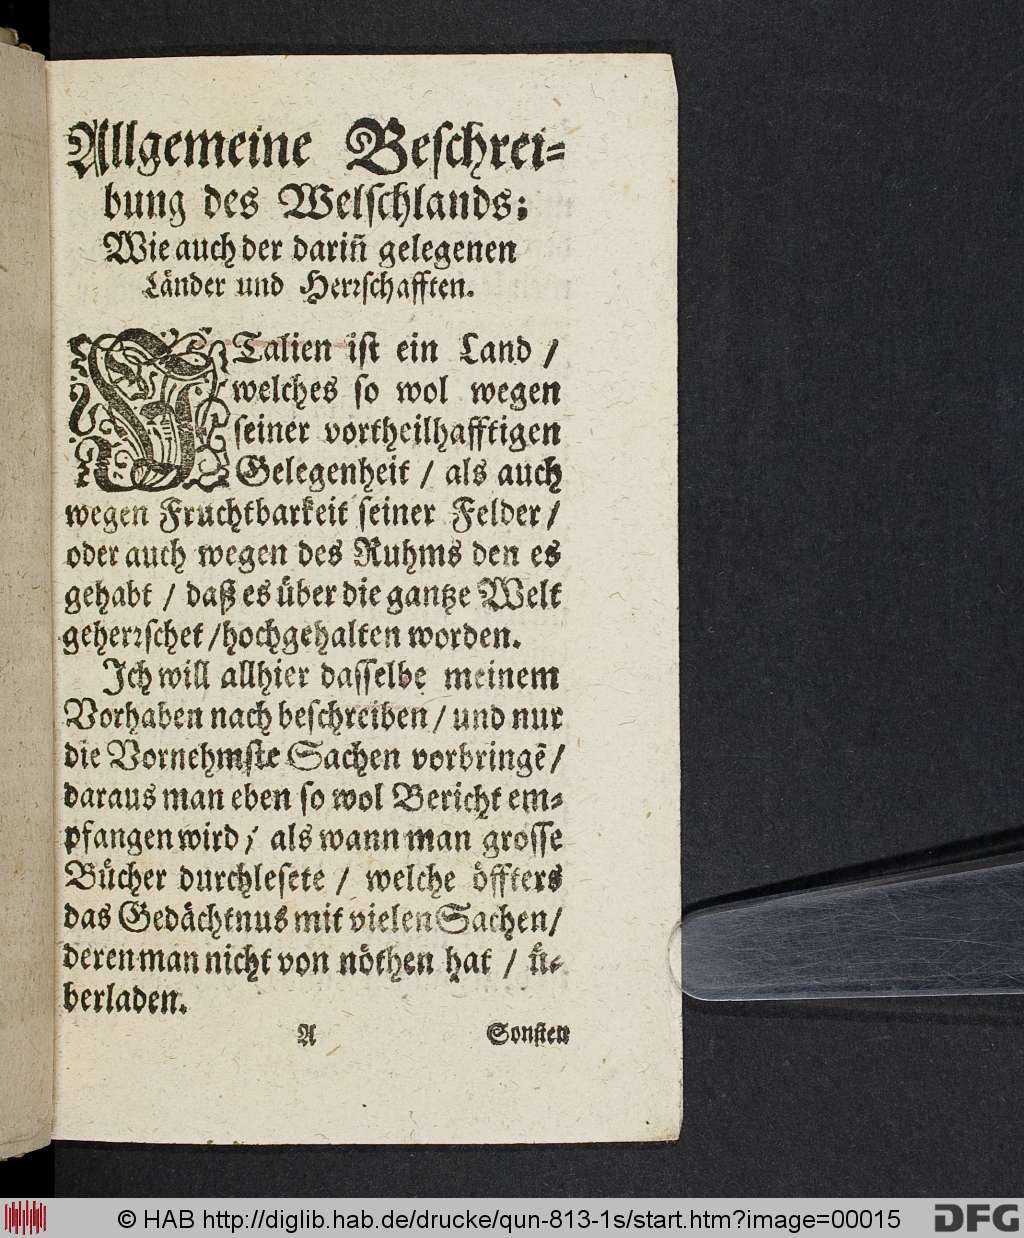 Allgemeine Beschrei-
bung des Welschlands;
Wie auch der dariñ gelegenen
Länder und Herrschafften.
ITalien ist ein Land /
welches so wol wegen
seiner vortheilhafftigen
Gelegenheit / als auch
wegen Fruchtbarkeit seiner Felder /
oder auch wegen des Ruhms den es
gehabt / daß es über die gantze Welt
geherrschet / hochgehalten worden.
Ich will allhier dasselbe meinem
Vorhaben nach beschreiben / und nur
die Vornehmste Sachen vorbringẽ /
daraus man eben so wol Bericht em-
pfangen wird / als wann man grosse
Bücher durchlesete / welche öffters
das Gedächtnus mit vielen Sachen /
deren man nicht von nöthen hat / ü-
berladen.
A Sonsten
© HAB http://diglib.hab.de/drucke/qun-813-1s/start.htm?image=00015 DFG